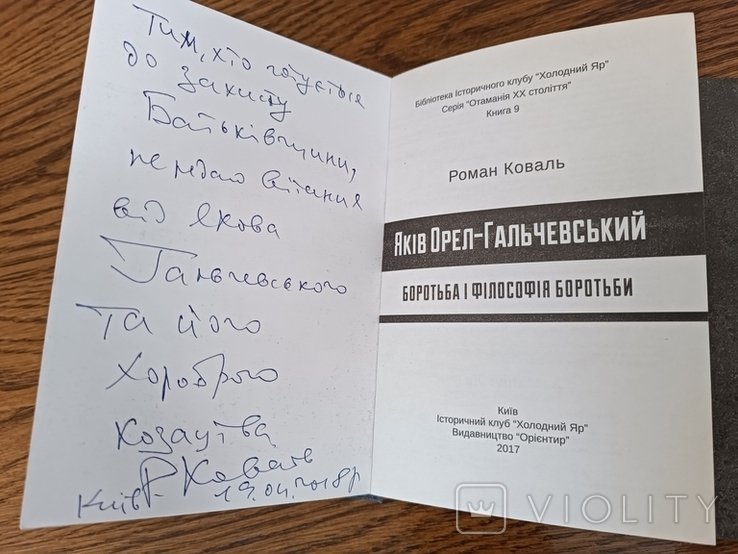 Тим, хто готується
до захисту
Батьківщини,
передаю вітання
від Якова
Гальчевського
Та його
Хороброго
козацтва
Р Коваль
Київ 19.04.2018р
Бібліотека Історичного клубу "Холодний Яр"
Серія "Отаманія ХХ століття"
Книга 9
Роман Коваль
Яків Орел-Гальчевський
БОРОТЬБА І ФІЛОСОФІЯ БОРОТЬБИ
Київ
Історичний клуб "Холодний Яр"
Видавництво "Орієнтир"
2017
VIOLITY